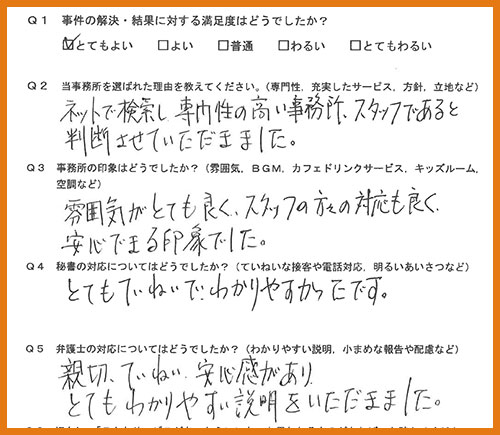 Q1 事件の解決・結果に対する満足度はどうでしたか？
☑とてもよい □よい □普通 □わるい □とてもわるい
Q2 当事務所を選ばれた理由を教えてください。（専門性，充実したサービス，方針，立地など）
ネットで検索し、専門性の高い事務所、スタッフであると
判断させていただきました。
Q3 事務所の印象はどうでしたか？（雰囲気，ＢＧＭ，カフェドリンクサービス，キッズルーム，
空調など）
雰囲気がとても良く、スタッフの方々の対応も良く、
安心できる印象でした。
Q4 秘書の対応についてはどうでしたか？（ていねいな接客や電話対応，明るいあいさつなど）
とてもていねいで、わかりやすかったです。
Q5 弁護士の対応についてはどうでしたか？（わかりやすい説明，小まめな報告や配慮など）
親切、ていねい、安心感があり、
とてもわかりやすい説明をいただきました。